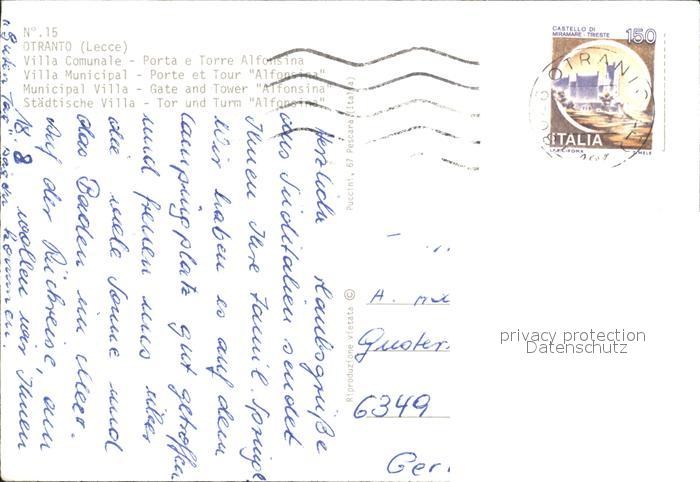 N°.15
OTRANTO (Lecce)
Villa Comunale - Porta e Torre Alfonsina
Villa Municipal - Porte et Tour "Alfonsina"
Municipal Villa - Gate and Tower "Alfonsina"
Städtische Villa - Tor und Turm "Alfonsina"
CASTELLO DI
MIRAMARE - TRIESTE
150
ITALIA
OTRANTO
Puccini, 67 Pescara (Italia)
Riproduzione vietata ©
Herzliche Urlaubsgrüße
aus Süditalien sendet
Ihnen Ihre Famil.
Wir haben es auf dem
Campingplatz gut getroffen
und freuen uns über
die viele Sonne und
das Baden im Meer.
Auf der Rückreise, am
18. 8 wollen wir Ihnen
"Guten Tag" sagen kommen.
A.
6349
Ger
privacy protection
Datenschutz